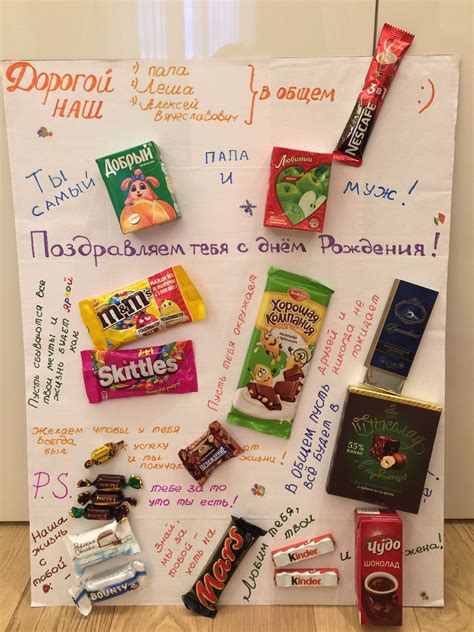 Дорогой наш
1) папа
2) Леша
3) Алексей Вячеславович
В общем :)
3 в 1
NESCAFÉ
Ты самый
Добрый
папа и
Любимый
муж!
Поздравляем тебя с днём Рождения!
Пусть сбываются все твои мечты и жизнь будет яркой как
m&m's
Skittles
Пусть тебя окружает
Хорошая компания
друзей и никогда не покидает
В общем пусть всё будет в
Шоколад
55% какао
Желаем чтобы у тебя всегда был
к успеху и ты получал
от жизни!
P.S.
тебе за то, что ты есть!
Наша жизнь с тобой -
BOUNTY
Знай, мы за тобой - хоть на
Mars
Любим тебя, твои
Kinder
Kinder
и
Чудо
ШОКОЛАД
жена!